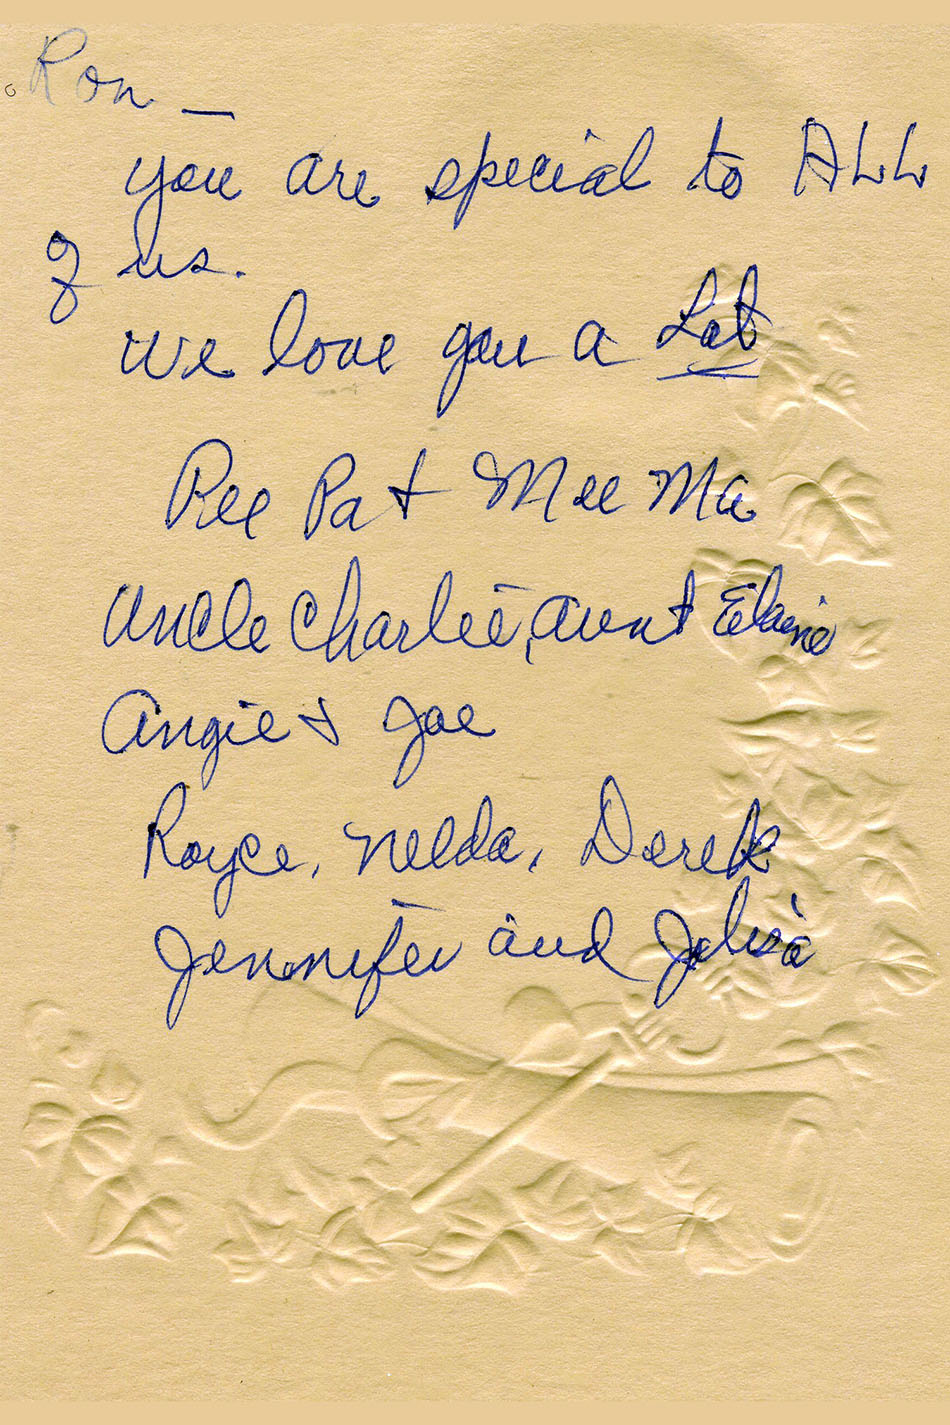 Ron —
you are special to ALL
of us.
we love you a Lot
Pee Pa + Mee Ma
Uncle Charlie, Aunt Elaine
Angie + Joe
Royce, Nelda, Derek
Jennifer and